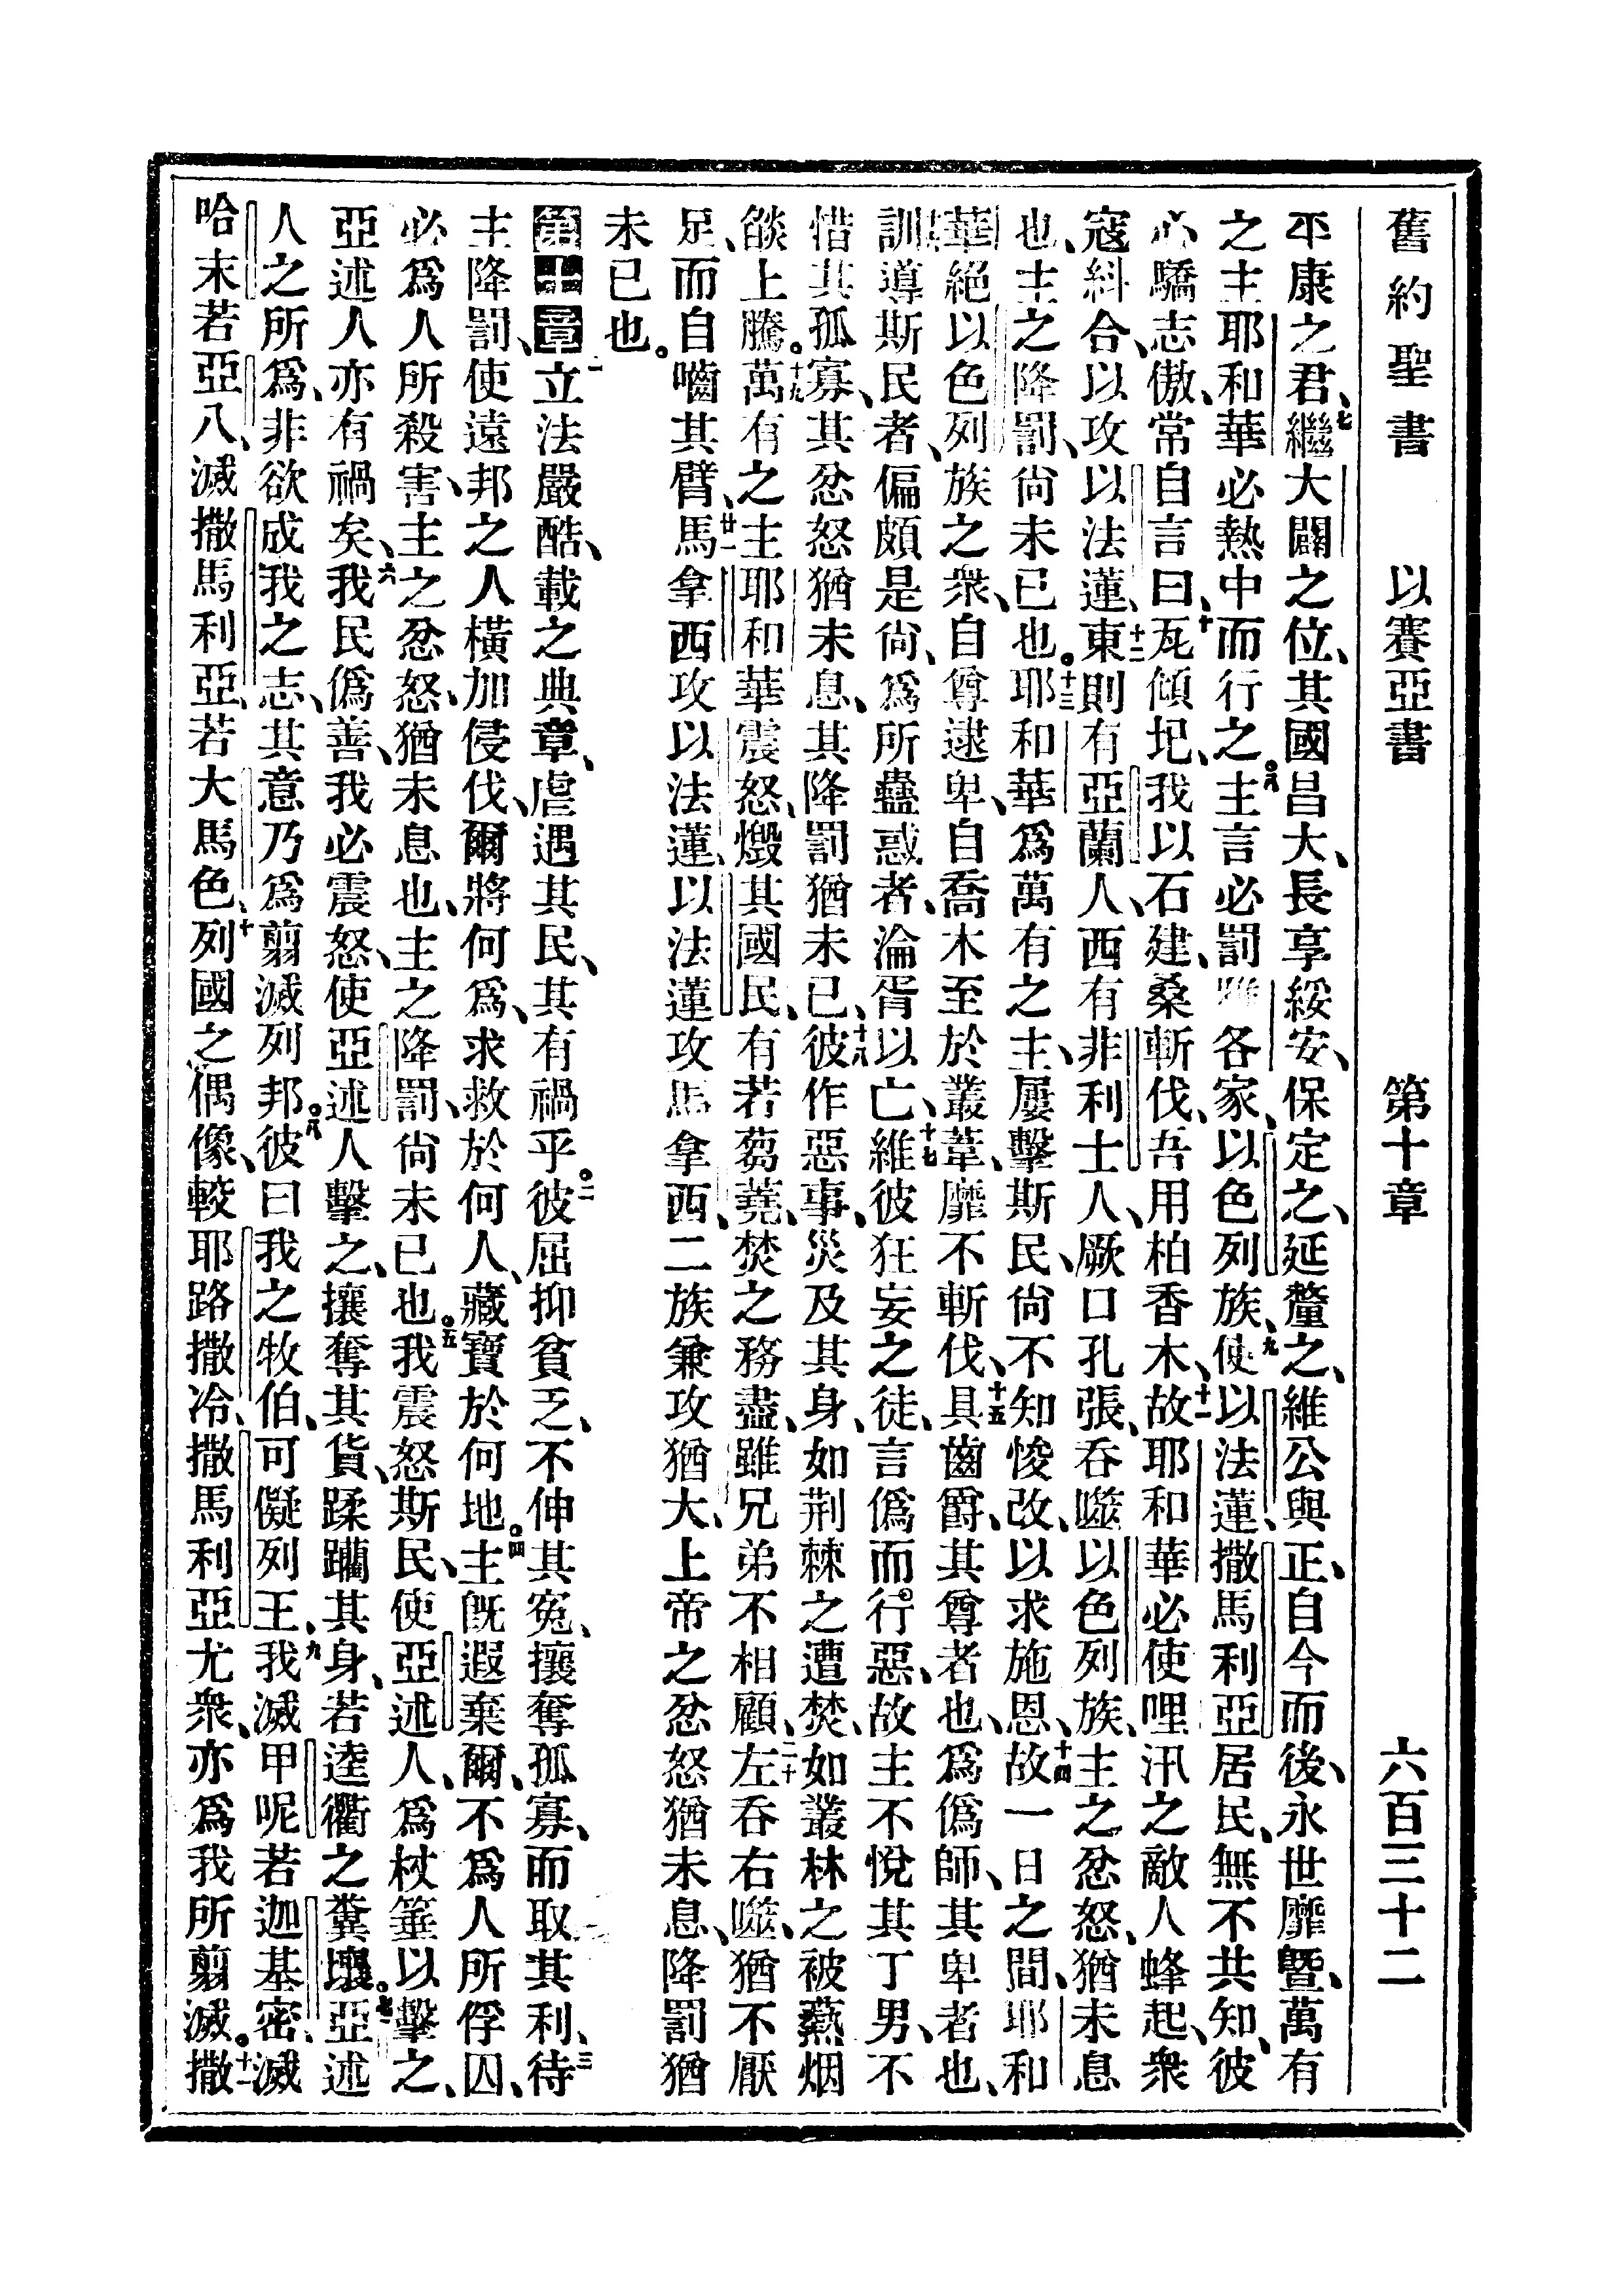 舊約聖書 以賽亞書 第十章 六百三十二
平康之君、七繼大闢之位、其國昌大、長享綏安、保定之、延釐之、維公與正、自今而後、永世靡曁、萬有
之主耶和華必熱中而行之。八主言必罰雅各家、以色列族、九使以法蓮、撒馬利亞居民、無不共知、彼
必驕志傲、常自言曰、十瓦傾圮、我以石建、桑斬伐、吾用柏香木、十一故耶和華必使哩汛之敵人蜂起、衆
寇糾合、以攻以法蓮、十二東則有亞蘭人、西有非利士人、厥口孔張、吞噬以色列族、主之忿怒、猶未息
也、主之降罰、尚未已也。十三耶和華爲萬有之主、屢擊斯民、尚不知悛改、以求施恩、十四故一日之間、耶和
華絕以色列族之衆、自尊逮卑、自喬木至於叢葦、靡不斬伐、十五具齒爵、其尊者也、爲僞師、其卑者也、
訓導斯民者、偏頗是尚、爲所蠱惑者、淪胥以亡、十七維彼狂妄之徒、言僞而行惡、故主不悅其丁男、不
惜其孤寡、其忿怒猶未息、其降罰猶未已、十八彼作惡事、災及其身、如荆棘之遭焚、如叢林之被爇、烟
燄上騰。十九萬有之主耶和華震怒、燬其國民、有若芻蕘、焚之務盡、雖兄弟不相顧、二十左吞右噬、猶不厭
足、而自嚙其臂、廿一馬拿西攻以法蓮、以法蓮攻馬拿西、二族兼攻猶大、上帝之忿怒猶未息、降罰猶
未已也。
第十章一立法嚴酷、載之典章、虐遇其民、其有禍乎。二彼屈抑貧乏、不伸其寃、攘奪孤寡、而取其利、三待
主降罰、使遠邦之人橫加侵伐、爾將何爲、求救於何人、藏寶於何地。四主旣遐棄爾、不爲人所俘囚、
必爲人所殺害、主之忿怒、猶未息也、主之降罰、尚未已也。五我震怒斯民、使亞述人、爲杖箠以擊之、
亞述人亦有禍矣、六我民僞善、我必震怒、使亞述人擊之、攘奪其貨、蹂躪其身、若逵衢之糞壤。七亞述
人之所爲、非欲成我之志、其意乃爲翦滅列邦。八彼曰我之牧伯、可儗列王、九我滅甲呢若迦基密、滅
哈末若亞八、滅撒馬利亞、若大馬色、十列國之偶像、較耶路撒冷、撒馬利亞尤衆、亦爲我所翦滅。十一撒